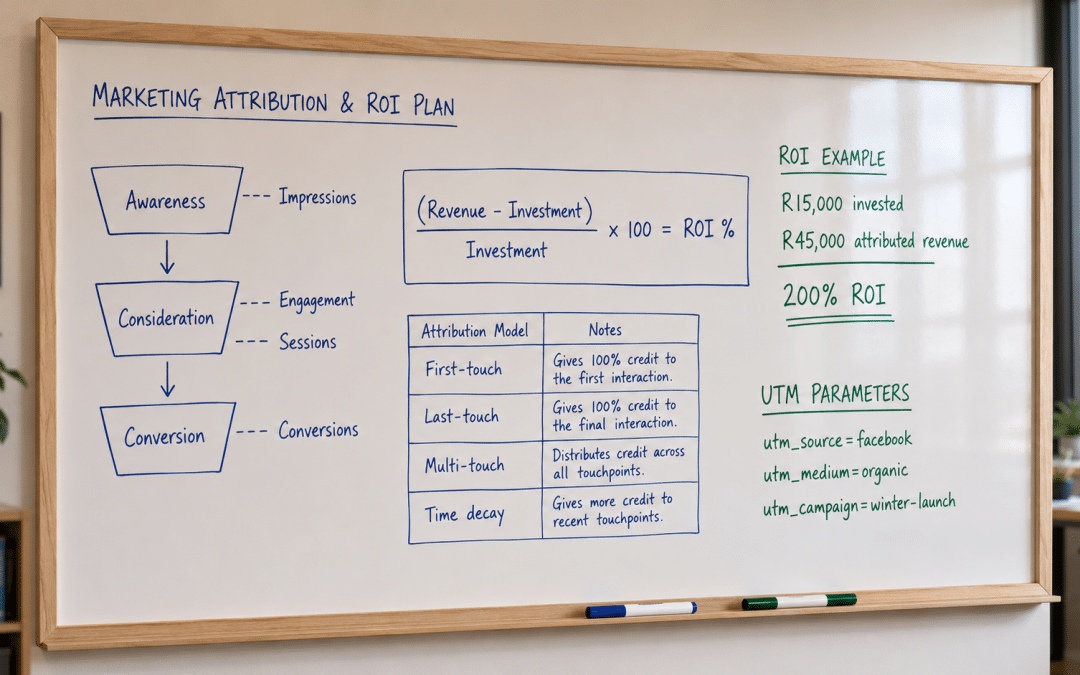 MARKETING ATTRIBUTION & ROI PLAN
Awareness
Impressions
Consideration
Engagement
Sessions
Conversion
Conversions
(Revenue - Investment)
Investment
x 100 = ROI %
Attribution Model
Notes
First-touch
Gives 100% credit to
the first interaction.
Last-touch
Gives 100% credit to
the final interaction.
Multi-touch
Distributes credit across
all touchpoints.
Time decay
Gives more credit to
recent touchpoints.
ROI EXAMPLE
R15,000 invested
R45,000 attributed revenue
200% ROI
UTM PARAMETERS
utm_source=facebook
utm_medium=organic
utm_campaign=winter-launch